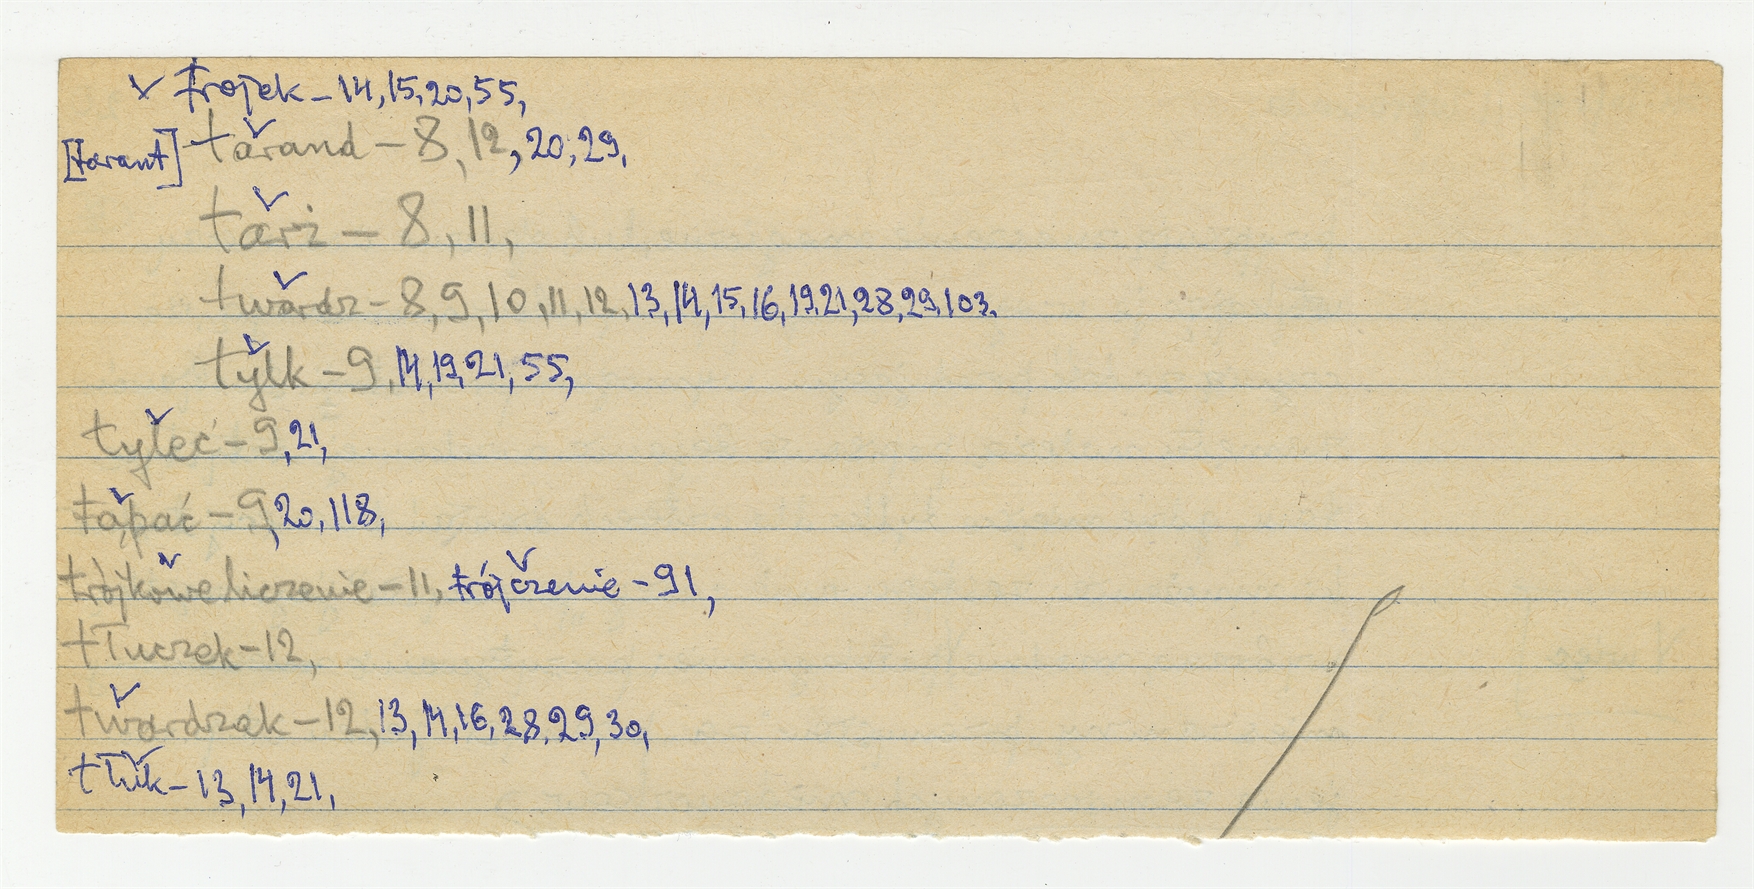 ✓ trojek - 14, 15, 20, 55,
[tarant] tarand - 8, 12, 20, 29,
tarż - 8, 11,
twardz - 8, 9, 10, 11, 12, 13, 14, 15, 16, 19, 21, 28, 29, 103,
tylk - 9, 14, 19, 21, 55,
tyłeć - 9, 21,
tąpać - 9, 20, 118,
trójkowe liczenie - 11, trójczenie - 91,
tłuczek - 12,
twardzak - 12, 13, 14, 16, 28, 29, 30,
tłuk - 13, 14, 21,